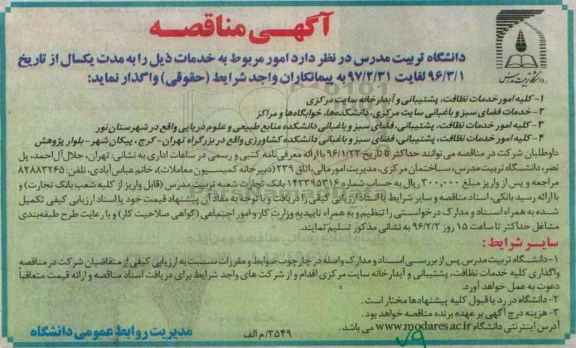 آگهی مناقصه
دانشگاه تربیت مدرس
دانشگاه تربیت مدرس در نظر دارد امور مربوط به خدمات ذیل را به مدت یکسال از تاریخ
۹۶/۳/۱ لغایت ۹۷/۲/۳۱ به پیمانکاران واجد شرایط (حقوقی) واگذار نماید:
۱- کلیه امور خدمات نظافت، پشتیبانی و آبدارخانه سایت مرکزی
۲- خدمات فضای سبز و باغبانی سایت مرکزی، دانشکده‌ها، خوابگاه‌ها و مراکز
۳- کلیه امور خدمات نظافت، پشتیبانی، فضای سبز و باغبانی دانشکده منابع طبیعی و علوم دریایی واقع در شهرستان نور
۴- کلیه امور خدمات نظافت، پشتیبانی، فضای سبز و باغبانی دانشکده کشاورزی واقع در بزرگراه تهران- کرج، پیکان شهر- بلوار پژوهش
داوطلبان شرکت در مناقصه می توانند حداکثر تا تاریخ ۹۶/۱/۲۳ با ارائه معرفی‌نامه کتبی و رسمی در ساعات اداری به نشانی: تهران، جلال آل‌احمد، پل
نصر، دانشگاه تربیت مدرس، ساختمان مرکزی، مدیریت امور مالی، اتاق ۲۳۹ (دبیرخانه کمیسیون معاملات)، خانم عباس‌آبادی، تلفن: ۸۲۸۸۳۲۶۵
مراجعه و پس از واریز مبلغ ۳۰۰,۰۰۰ ریال به حساب شماره ۱۴۲۲۹۵۳۱۶ بانک تجارت شعبه تربیت مدرس (قابل واریز از کلیه شعب بانک تجارت) و
با ارائه رسید بانکی، اسناد مناقصه و سایر شرایط یا اسناد ارزیابی کیفی را دریافت و با توجه به مفاد آن پیشنهاد قیمت خود یا اسناد ارزیابی کیفی تکمیل
شده به همراه اسناد و مدارک درخواستی را تنظیم و به همراه تاییدیه وزارت کار و امور اجتماعی (گواهی صلاحیت کار) و با رعایت طرح طبقه‌بندی
مشاغل حداکثر تا ساعت ۱۵ روز ۹۶/۲/۲ به نشانی مذکور تسلیم نمایند.
سایر شرایط:
۱- دانشگاه تربیت مدرس پس از بررسی اسناد و مدارک واصله در چارچوب ضوابط و مقررات نسبت به ارزیابی کیفی از متقاضیان شرکت در مناقصه
واگذاری کلیه خدمات نظافت، پشتیبانی و آبدارخانه سایت مرکزی اقدام و از شرکت های واجد شرایط برای دریافت اسناد مناقصه و ارائه قیمت متعاقباً
دعوت به عمل خواهد آورد.
۲- دانشگاه در رد یا قبول کلیه پیشنهادها مختار است.
۳- هزینه درج آگهی بر عهده برنده مناقصه خواهد بود.
آدرس اینترنتی دانشگاه www.modares.ac.ir می باشد.
۳۵۴۹/م الف
مدیریت روابط عمومی دانشگاه